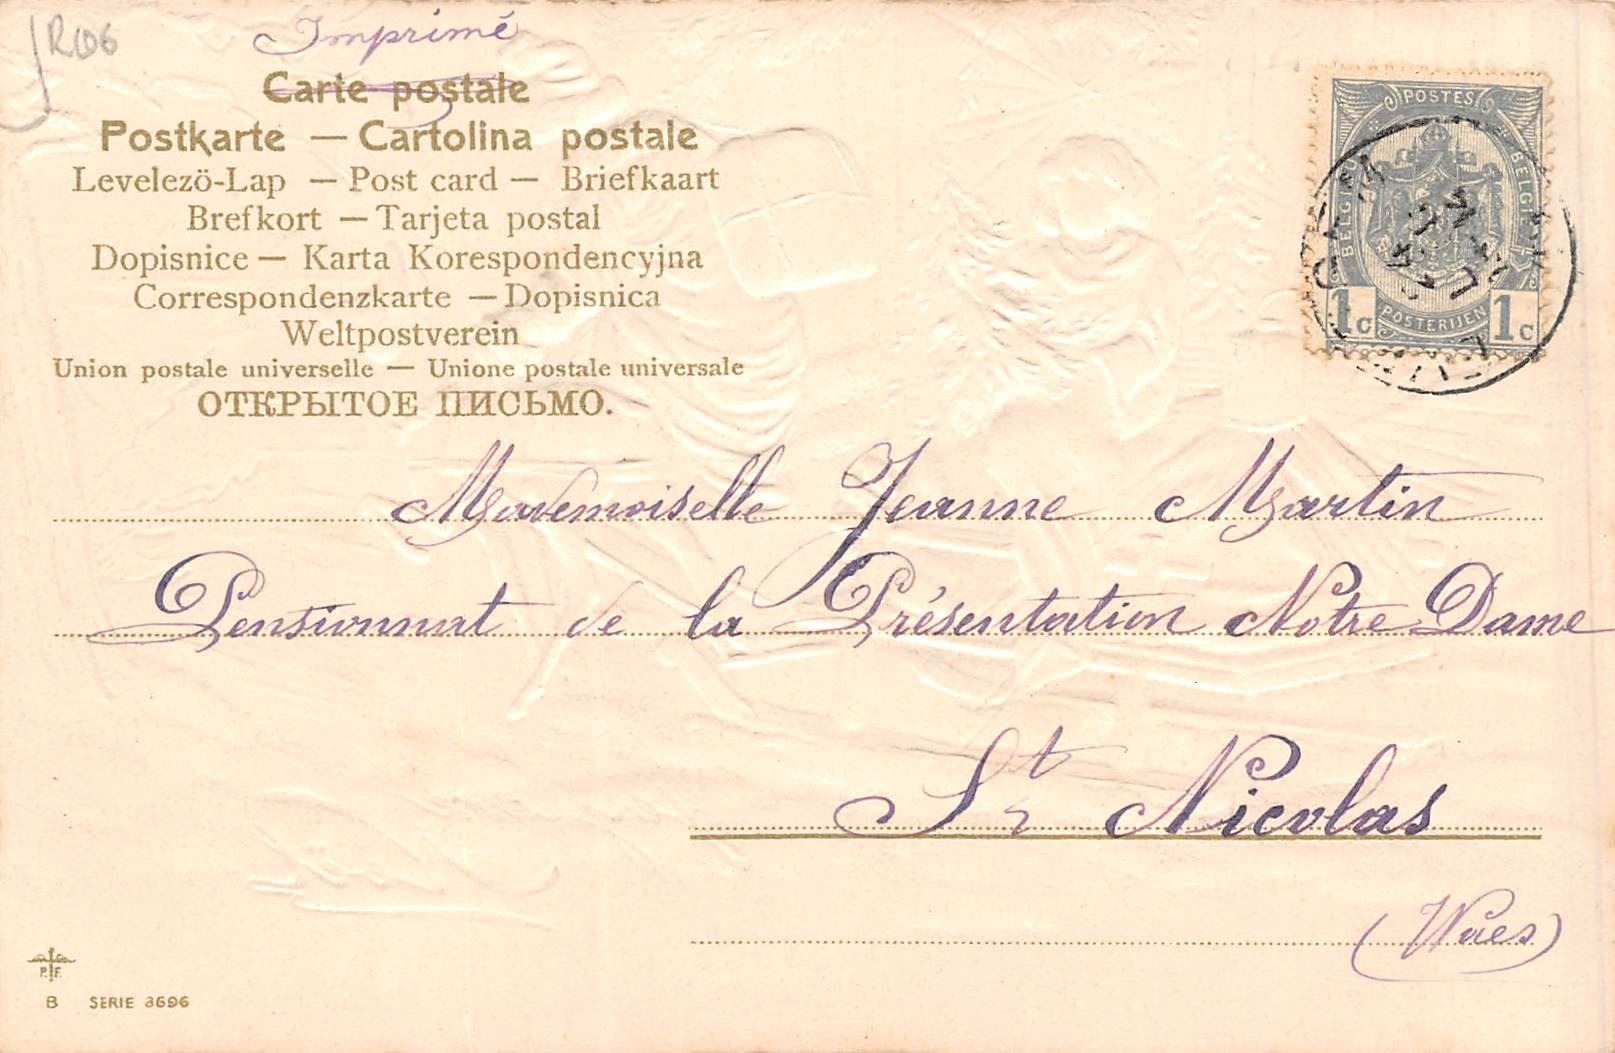 JR06
Imprimé
Carte postale
Postkarte — Cartolina postale
Levelezö-Lap — Post card — Briefkaart
Brefkort — Tarjeta postal
Dopisnice — Karta Korespondencyjna
Correspondenzkarte — Dopisnica
Weltpostverein
Union postale universelle — Unione postale universale
ОТКРЫТОЕ ПИСЬМО.
POSTES
BELGIQUE
BELGIË
1c POSTERIJEN 1c
Mademoiselle Jeanne Martin
Pensionnat de la Présentation Notre Dame
St Nicolas
(Waes)
P. F.
B SERIE 3696